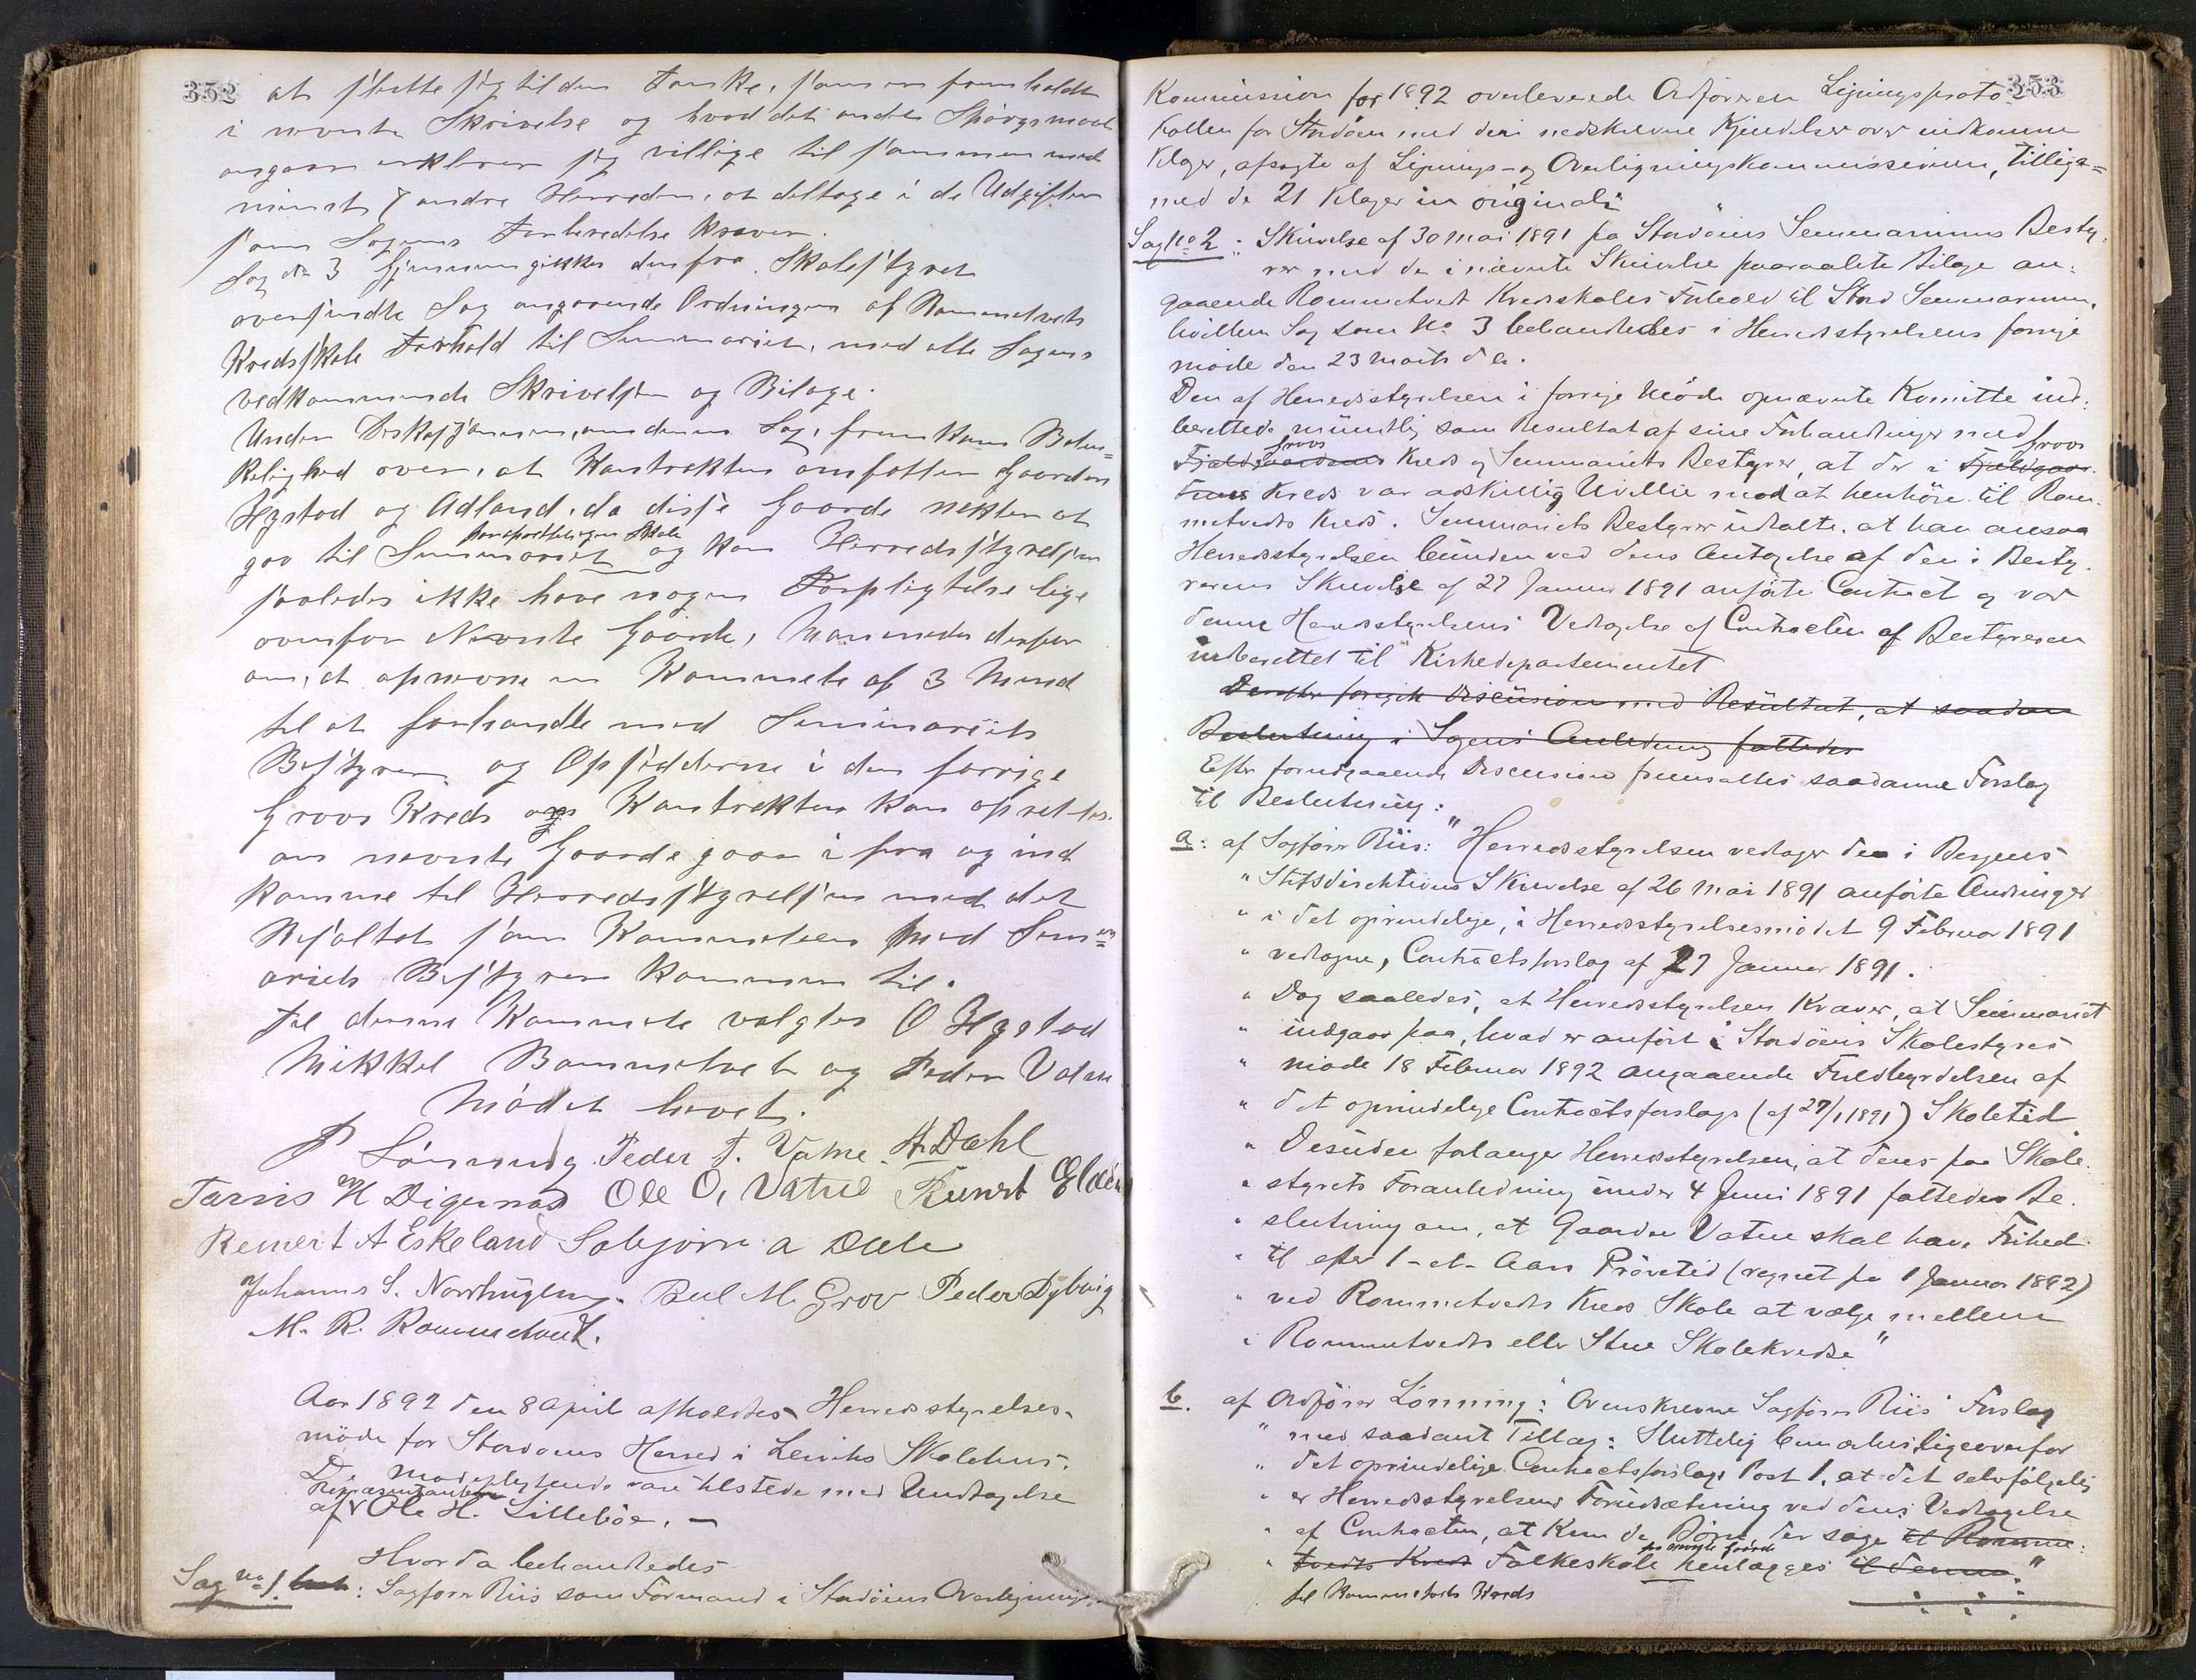 352
at slutte sig til den Tanke, som er fremholdt
i nevnte Skrivelse og hvad det andet Spørgsmaal
angaar erklærer sig villige til sammen med
minst 7 andre Herreder, at deltage i de Udgifter
som Sagens Forberedelse kræver.
Sag No 3 Gjennemgikkes den fra Skolestyret
oversendte Sag angaaende Ordningen af Rommetvets
Kredsskole Forhold til Seminariet, med alle Sagens
vedkommende Skrivelser og Bilage.
Under Diskusjonen, om denne Sag, fremkom Beten=
kelighed over, at Kontrakten omfatter Gaarden
Hystad og Adland, da disse Gaarde nekter at
gaa til Seminariet og kan Herredsstyrelsen
saaledes ikke have nogen Forpligtelse lige
overfor Nevnte Gaarde, Man enedes derfor
om, at opnevne en Kommete af 3 Mend
til at forhandle med Seminariets
Bestyrer og Opsidderne i den forrige
Groov Kreds om Kontrakten kan oprettes.
om nevnte Gaarde gaar i fra og ind
komme til Herredsstyrelsen med det
Resultat som Kommeteen med Semin=
ariets Bestyrer kommer til.
Til denne Kommete valgtes O Hystad
Mikkel Rommetvet og Peder Vatne
Mødet hevet.
P Lønning. Peder T. Vatne. H. Dahl
H Digernes Ole O. Vatne
Reinert A Eskeland
Johannes S. M. Grov Peder Dybvig
M. R. Rommetvedt.
Aar 1892 den 8 April afholdtes Herredsstyrelses-
møde for Stordøens Herred i Lerviks Skolehus.
De Mødepligtende vare tilstede med Undtagelse
af Ole H. Lillebøe. —
Hvorda behandledes
Sag No 1. : Sagfører Riis som Formand i Stordøens Overligningz-
353
Kommission for 1892 overleverede Ordføreren Ligningsproto-
kollen for Stordøen med deri nedskrevne Kjendelser over indkomne
Klager, afsagte af Lignings- og Overligningskommissionen, tillige=
med de 21 Klager in originali
Sag No 2 : Skrivelse af 30 Mai 1891 fra Stordøens Seminariums Besty-
rer med de i nævnte Skrivelse paaraabte Bilage an-
gaaende Rommetvedt Kredsskoles Forhold til Stord Seminarium,
hvilken Sag som No 3 behandledes i Herredsstyrelsens forrige
møde den 23 Marts d. A.
Den af Herredsstyrelsen i forrige Møde opnævnte Komitte ind-
berettede mundtlig som Resultat af sine Forhandlinger med Groov
Groovs Kreds og Seminariets Bestyrer, at der i
Kreds var adskillig Uvillie mod at henhøre til Rom-
metvedts Kreds. Seminariets Bestyrer udtalte, at han ansaa
Herredsstyrelsen bunden ved dens Antagelse af den i Besty-
rerens Skrivelse af 27 Januar 1891 anførte Contract og var
denne Herredsstyrelsens Vedtagelse af Contracten af Bestyreren
indberettet til Kirkedepartementet
Derefter foregik Discussion med Resultat, at saadan
Beslutning i Sagens Anledning fattedes
Efter foregaaende Discussion fremsattes saadanne Forslag
til Beslutning:
a: af Sagfører Riis: "Herredsstyrelsen vedtager de i Bergens
" Stiftsdirektions Skrivelse af 26 Mai 1891 anførte Ændringer
" i det oprindelige, i Herredsstyrelsesmødet 9 Februar 1891
" vedtagne, Contractsforslag af 27 Januar 1891.
" Dog saaledes, at Herredsstyrelsen kræver, at Seminariet
" indgaar paa, hvad er anført i Stordøens Skolestyres
" møde 18 Februar 1892 angaaende Fuldbyrdelsen af
" det oprindelige Contractsforslags (af 27/1 1891) Skoletid.
" Desuden forlanger Herredsstyrelsen, at dens paa Skole-
" styrets Foranledning under 4 Juni 1891 fattede Be-
" slutning om, at Gaarden Vatne skal have Frihed
" til efter 1 - et - Aars Prøvetid (regnet fra 1 Januar 1892)
" ved Rommetvedts Kreds Skole at vælge mellem
" Rommetvedts eller Stue Skolekredse"
b. af Ordfører Lønning: "Ovenskrevne Sagfører Riis' Forslag
" med saadant Tillæg: Sluttelig bemærkes ligeoverfor
" det oprindelige Contractsforslags Post 1, at det selvfølgelig
" er Herredsstyrelsens Forudsætning ved dens Vedtagelse
" af Contracten, at kun de Børn, der søge til Romme-
" tvedts Kreds Folkeskole fra nævnte Gaarde henlægges til denne."
til Rommetvets Kreds